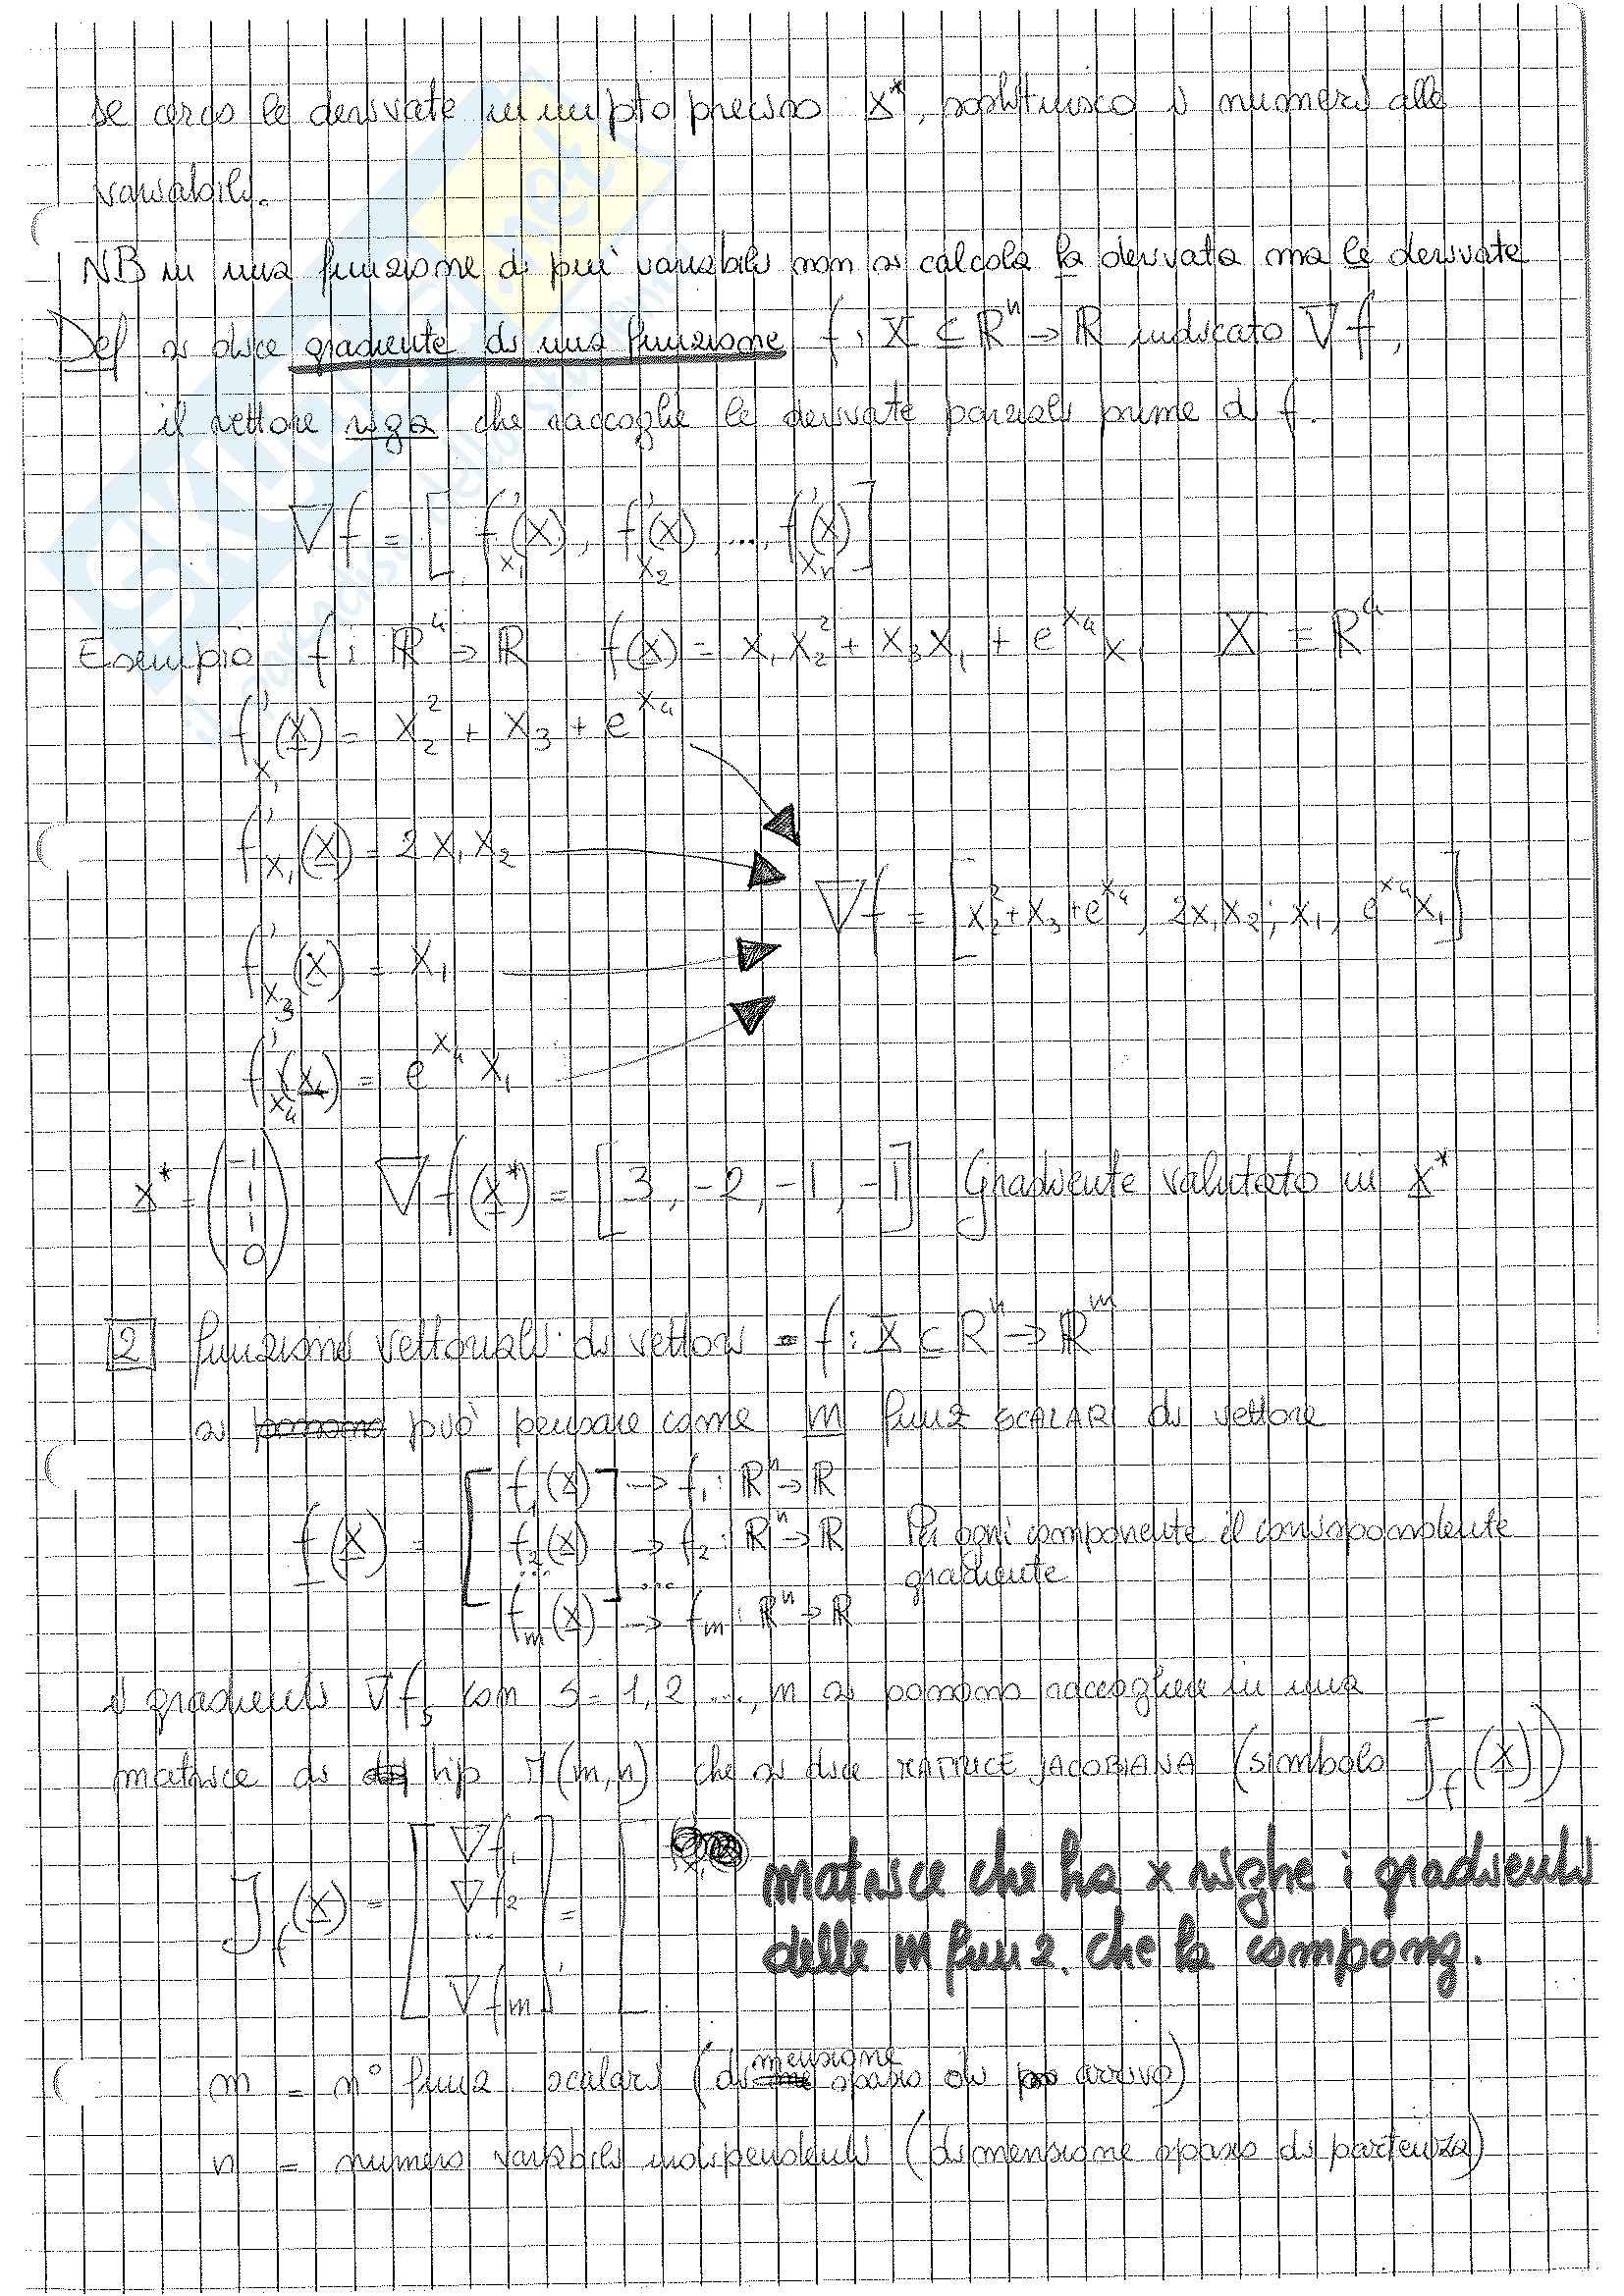 se cerco le derivate in un pto preciso x*, sostituisco i numeri alle
variabili.
NB in una funzione di più variabili non si calcola la derivata ma le derivate
Def si dice gradiente di una funzione f : X ⊆ ℝⁿ → ℝ indicato ∇f,
il vettore riga che raccoglie le derivate parziali prime di f.
∇f = [ f'x₁(x), f'x₂(x), ..., f'xₙ(x) ]
Esempio f : ℝ⁴ → ℝ f(x) = x₁x₂² + x₃x₁ + e^x₄ x₁ X = ℝ⁴
f'x₁(x) = x₂² + x₃ + e^x₄
f'x₁(x) = 2x₁x₂
∇f = [x₂² + x₃ + e^x₄, 2x₁x₂; x₁, e^x₄x₁]
f'x₃(x) = x₁
f'x₄(x) = e^x₄ x₁
x* = (-1 1 1 0) ∇f(x*) = [3, -2, -1, -1] Gradiente valutato in x*
2 funzioni vettoriali di vettori = f : X ⊆ ℝⁿ → ℝᵐ
si può pensare come m funz SCALARI di vettore
f₁(x) → f₁ : ℝⁿ → ℝ
f(x) = [ f₂(x) ] → f₂ : ℝⁿ → ℝ Per ogni componente il corrispondente
... ... gradiente
fₘ(x) → fₘ : ℝⁿ → ℝ
i gradienti ∇fₛ con s = 1, 2 ..., m si possono raccogliere in una
matrice di tipo (m, n) che si dice MATRICE JACOBIANA (simbolo J_f(x))
J_f(x) = [ ∇f₁ ∇f₂ ... ∇fₘ ] = [
matrice che ha x righe i gradienti
delle m funz. che la compong.
m = n° funz scalari (dimensione spazio di arrivo)
n = numero variabili indipendenti (dimensione spazio di partenza)